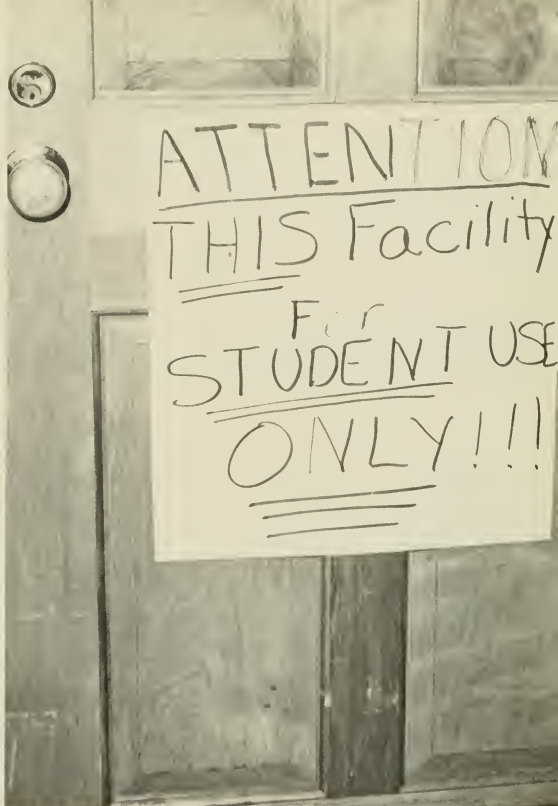 ATTENTION
THIS Facility
For
STUDENT USE
ONLY!!!